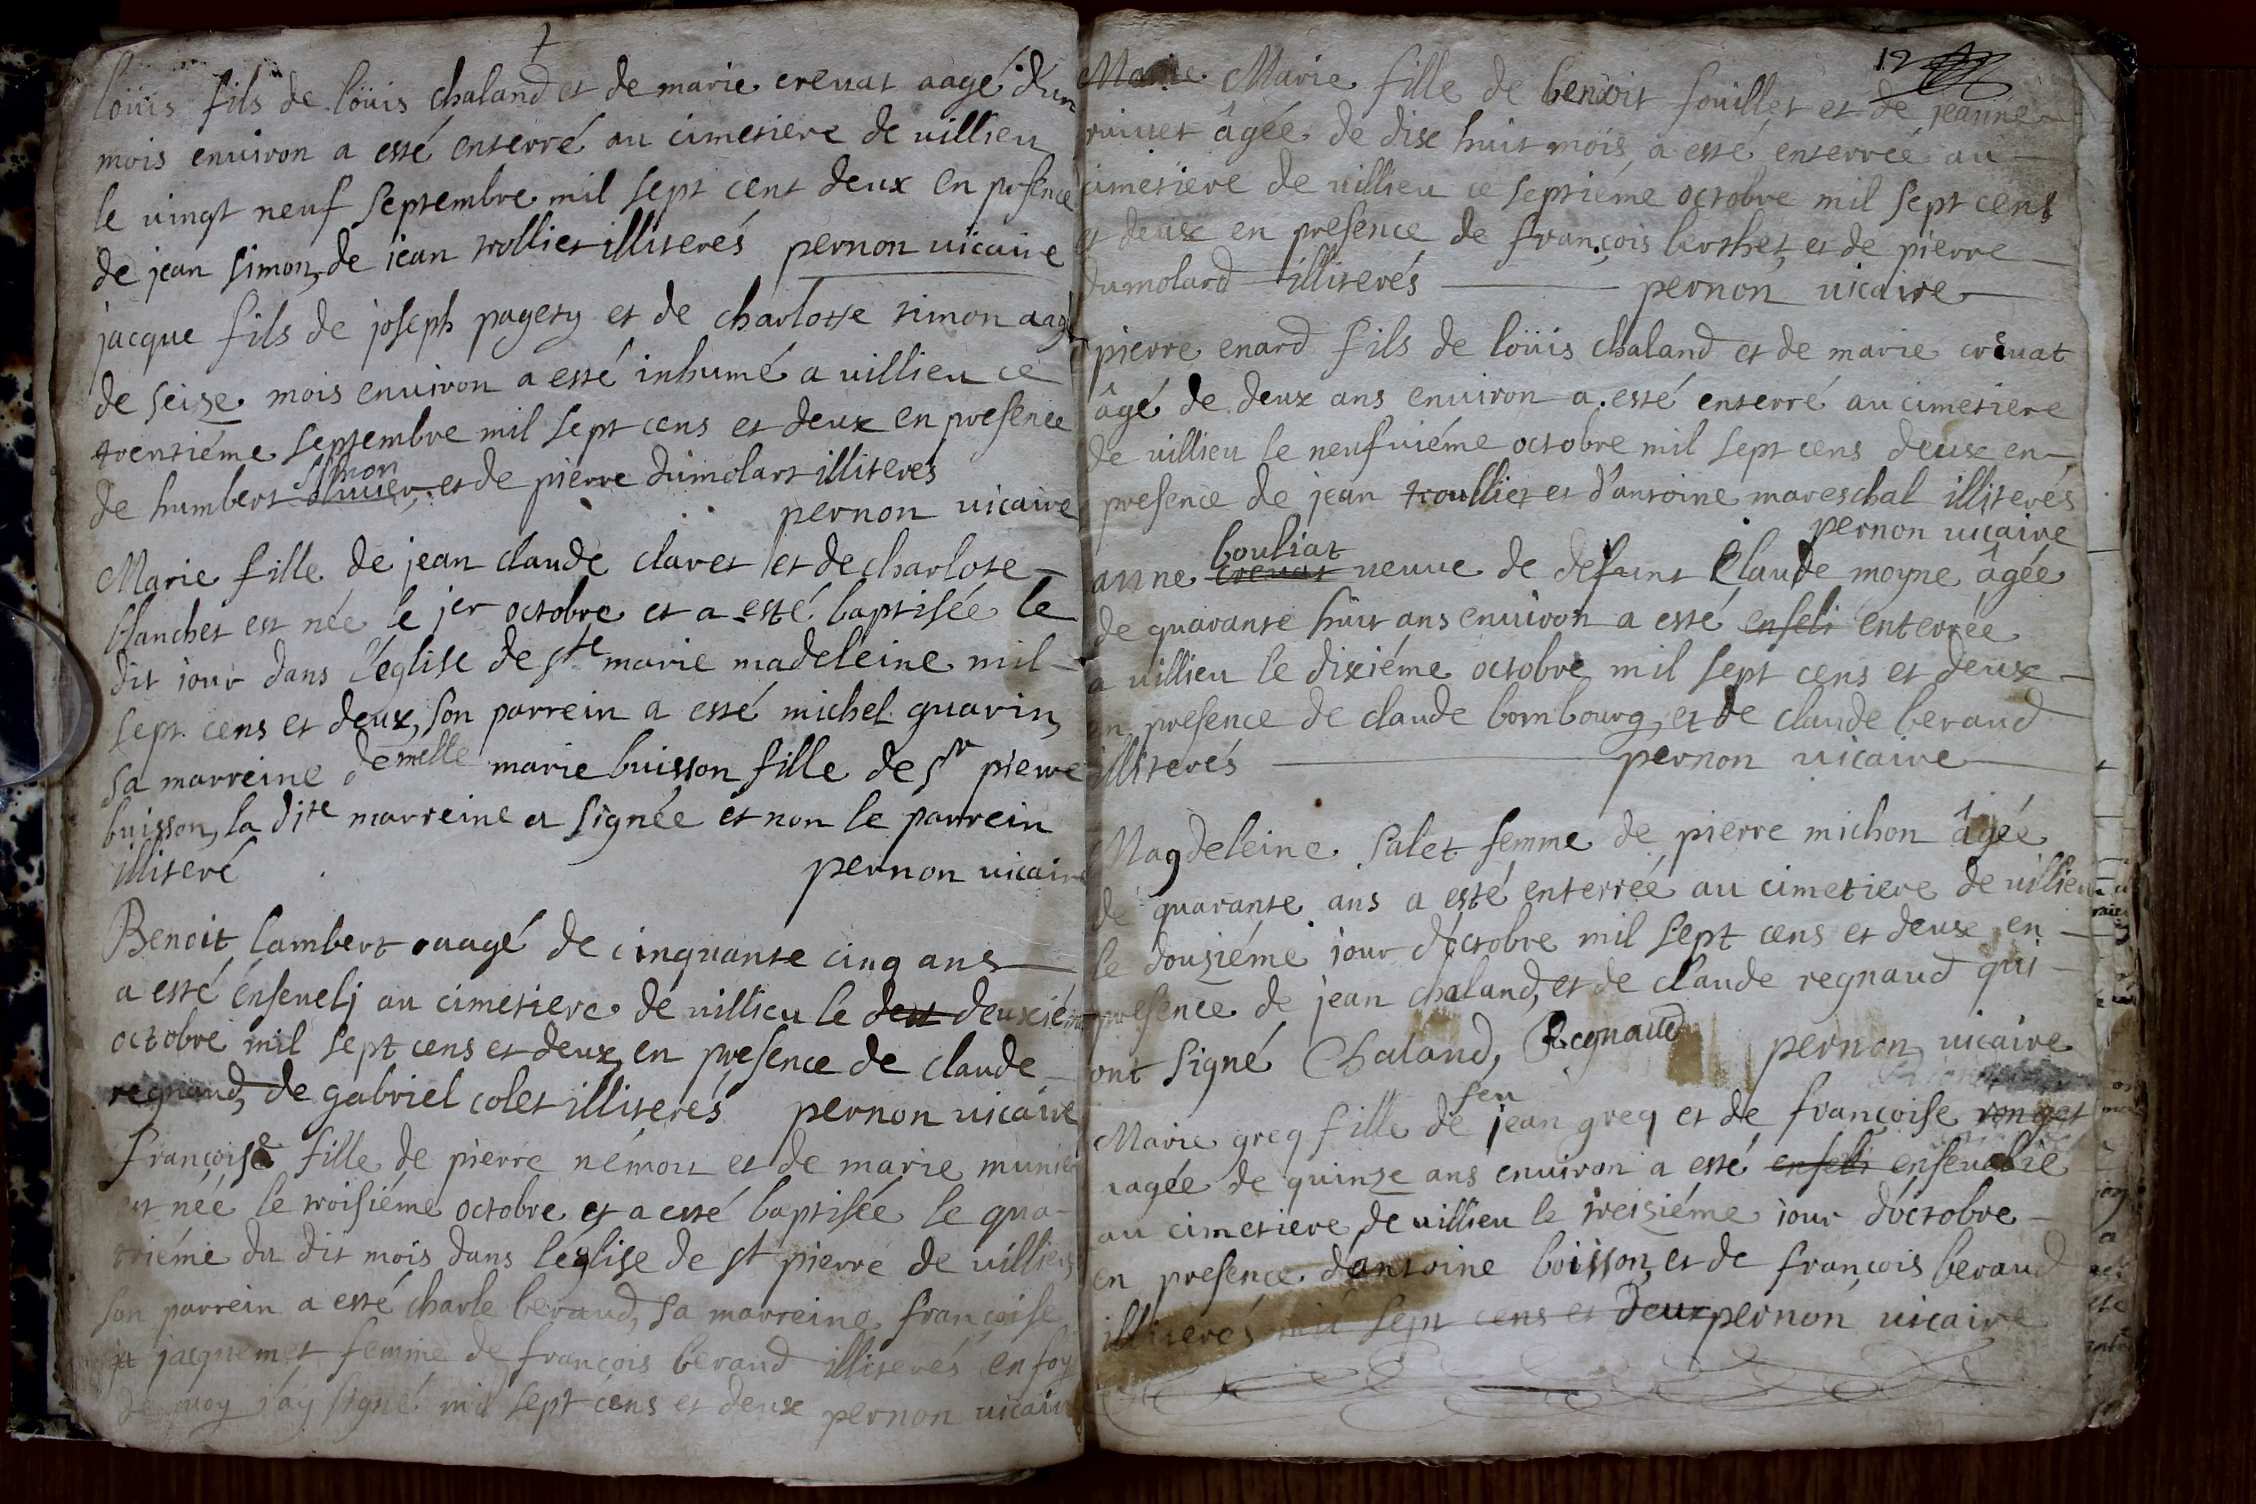 loüis fils de loüis chaland et de marie crevat aagé d'un
mois environ a esté enterré au cimetiere de villieu
le vingt neuf septembre mil sept cent deux en presence
de jean simon, de jean trolliet illiterés pernon vicaire
jacque fils de joseph pagety et de charlotte simon aagé
de seize mois environ a esté inhumé a villieu ce
trentiéme septembre mil sept cens et deux en presence
simon
de humbert olivier, et de pierre dumolart illiteres
pernon vicaire
Marie fille de jean claude claret et de charlote
blanchet est née le jer octobre et a esté baptisée le
dit jour dans l'église de ste marie madeleine mil
sept cens et deux, son parrein a esté michel guarin,
sa marreine demelle marie buisson fille de sr pierre
buisson, la dite marreine a signée et non le parrein
illiteré
pernon vicaire
Benoit lambert aagé de cinquante cinq ans
a esté énsevelj au cimetiere de villieu le deu deuxiéme
octobre mil sept cens et deux, en presence de claude
regnaud, de gabriel colet illiterés pernon vicaire
françoise fille de pierre némoz et de marie munier
est née le troisiéme octobre et a esté baptisée le qua-
triéme du dit mois dans l'église de st pierre de villieu
son parrein a esté charle beraud, sa marreine françoise
jacquemet femme de françois beraud illiterés en foy
de quoy j'ay signé mil sept cens et deux pernon vicaire
12
Marie Marie fille de benoit fouillet et de jeanne
âgée de dix huit mois, a esté enterrée au
cimetiere de villieu ce septiéme octobre mil sept cens
et deux en presence de françois berthet, et de pierre
dumolard illiterés pernon vicaire
pierre enard fils de loüis chaland et de marie crevat
âgé de deux ans environ a esté enterré au cimetiere
de villieu le neufviéme octobre mil sept cens deux en
presence de jean troulliet et d'antoine mareschal illiterés
pernon vicaire
bouliat
anne crevat veuve de defunt Claude moyne âgée
de quarante huit ans environ a esté enseli enterrée
a villieu le dixiéme octobre mil sept cens et deux
en presence de claude bombourg, et de claude beraud
illiterés pernon vicaire
Magdeleine salet femme de pierre michon âgée
de quarante ans a esté enterrée au cimetiere de villieu
le douziéme jour d'octobre mil sept cens et deux en
presence de jean chaland, et de claude regnaud qui
ont signé Chaland, Regnaud pernon vicaire
feu
Marie greq fille de jean greq et de françoise ronget
aagée de quinze ans environ a esté enseli ensevelie
au cimetiere de villieu le treiziéme jour d'octobre
en presence d'antoine boisson, et de françois beraud
illiterés mil sept cens et deux pernon vicaire